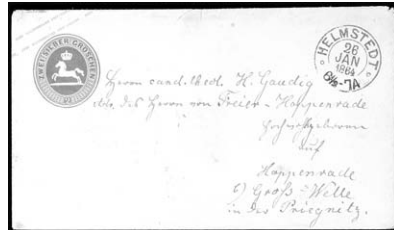 ZWEI SILBER GROSCHEN
HELMSTEDT
26
JAN
1864
6½-7A
Herrn cand. theol. H. Gaudig
des Herrn von Freier-Hoppenrade
auf
Hoppenrade
b) Groß-Welle
in der Priegnitz.